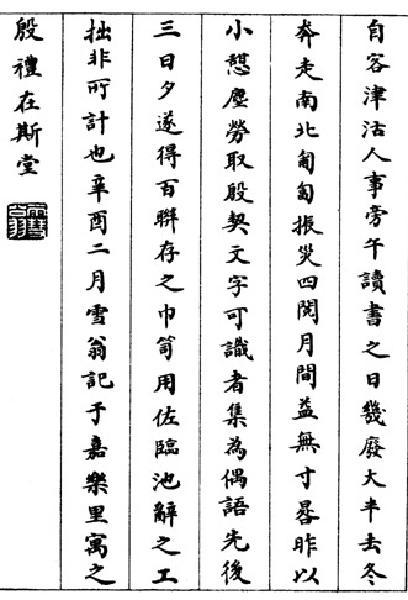 自客津沽人事旁午讀書之日幾廢大半去冬
奔走南北匍匐振災四閱月間益無寸晷昨以
小憩塵勞取殷契文字可識者集為偶語先後
三日夕遂得百聯存之巾笥用佐臨池辭之工
拙非所計也辛酉二月雪翁記于嘉樂里寓之
殷禮在斯堂